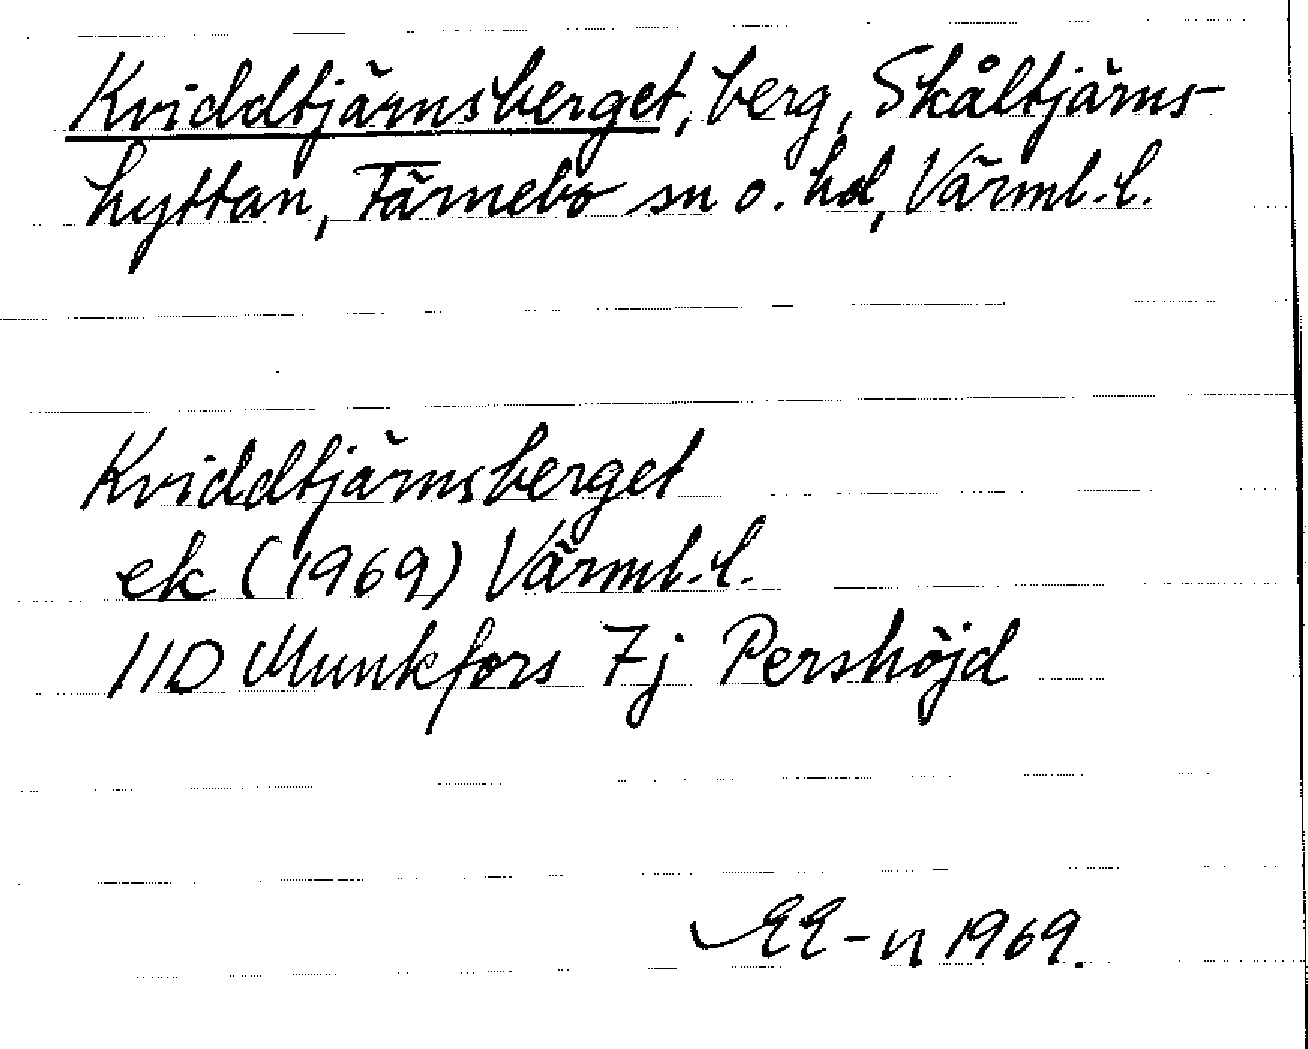 Kviddtjärnsberget, berg, Skåltjärns-
hyttan, Färnebo sn o. hd, Värml.l.
Kviddtjärnsberget
ek (1969) Värml.l.
11D Munkfors 7j Pershöjd
EE-n 1969.